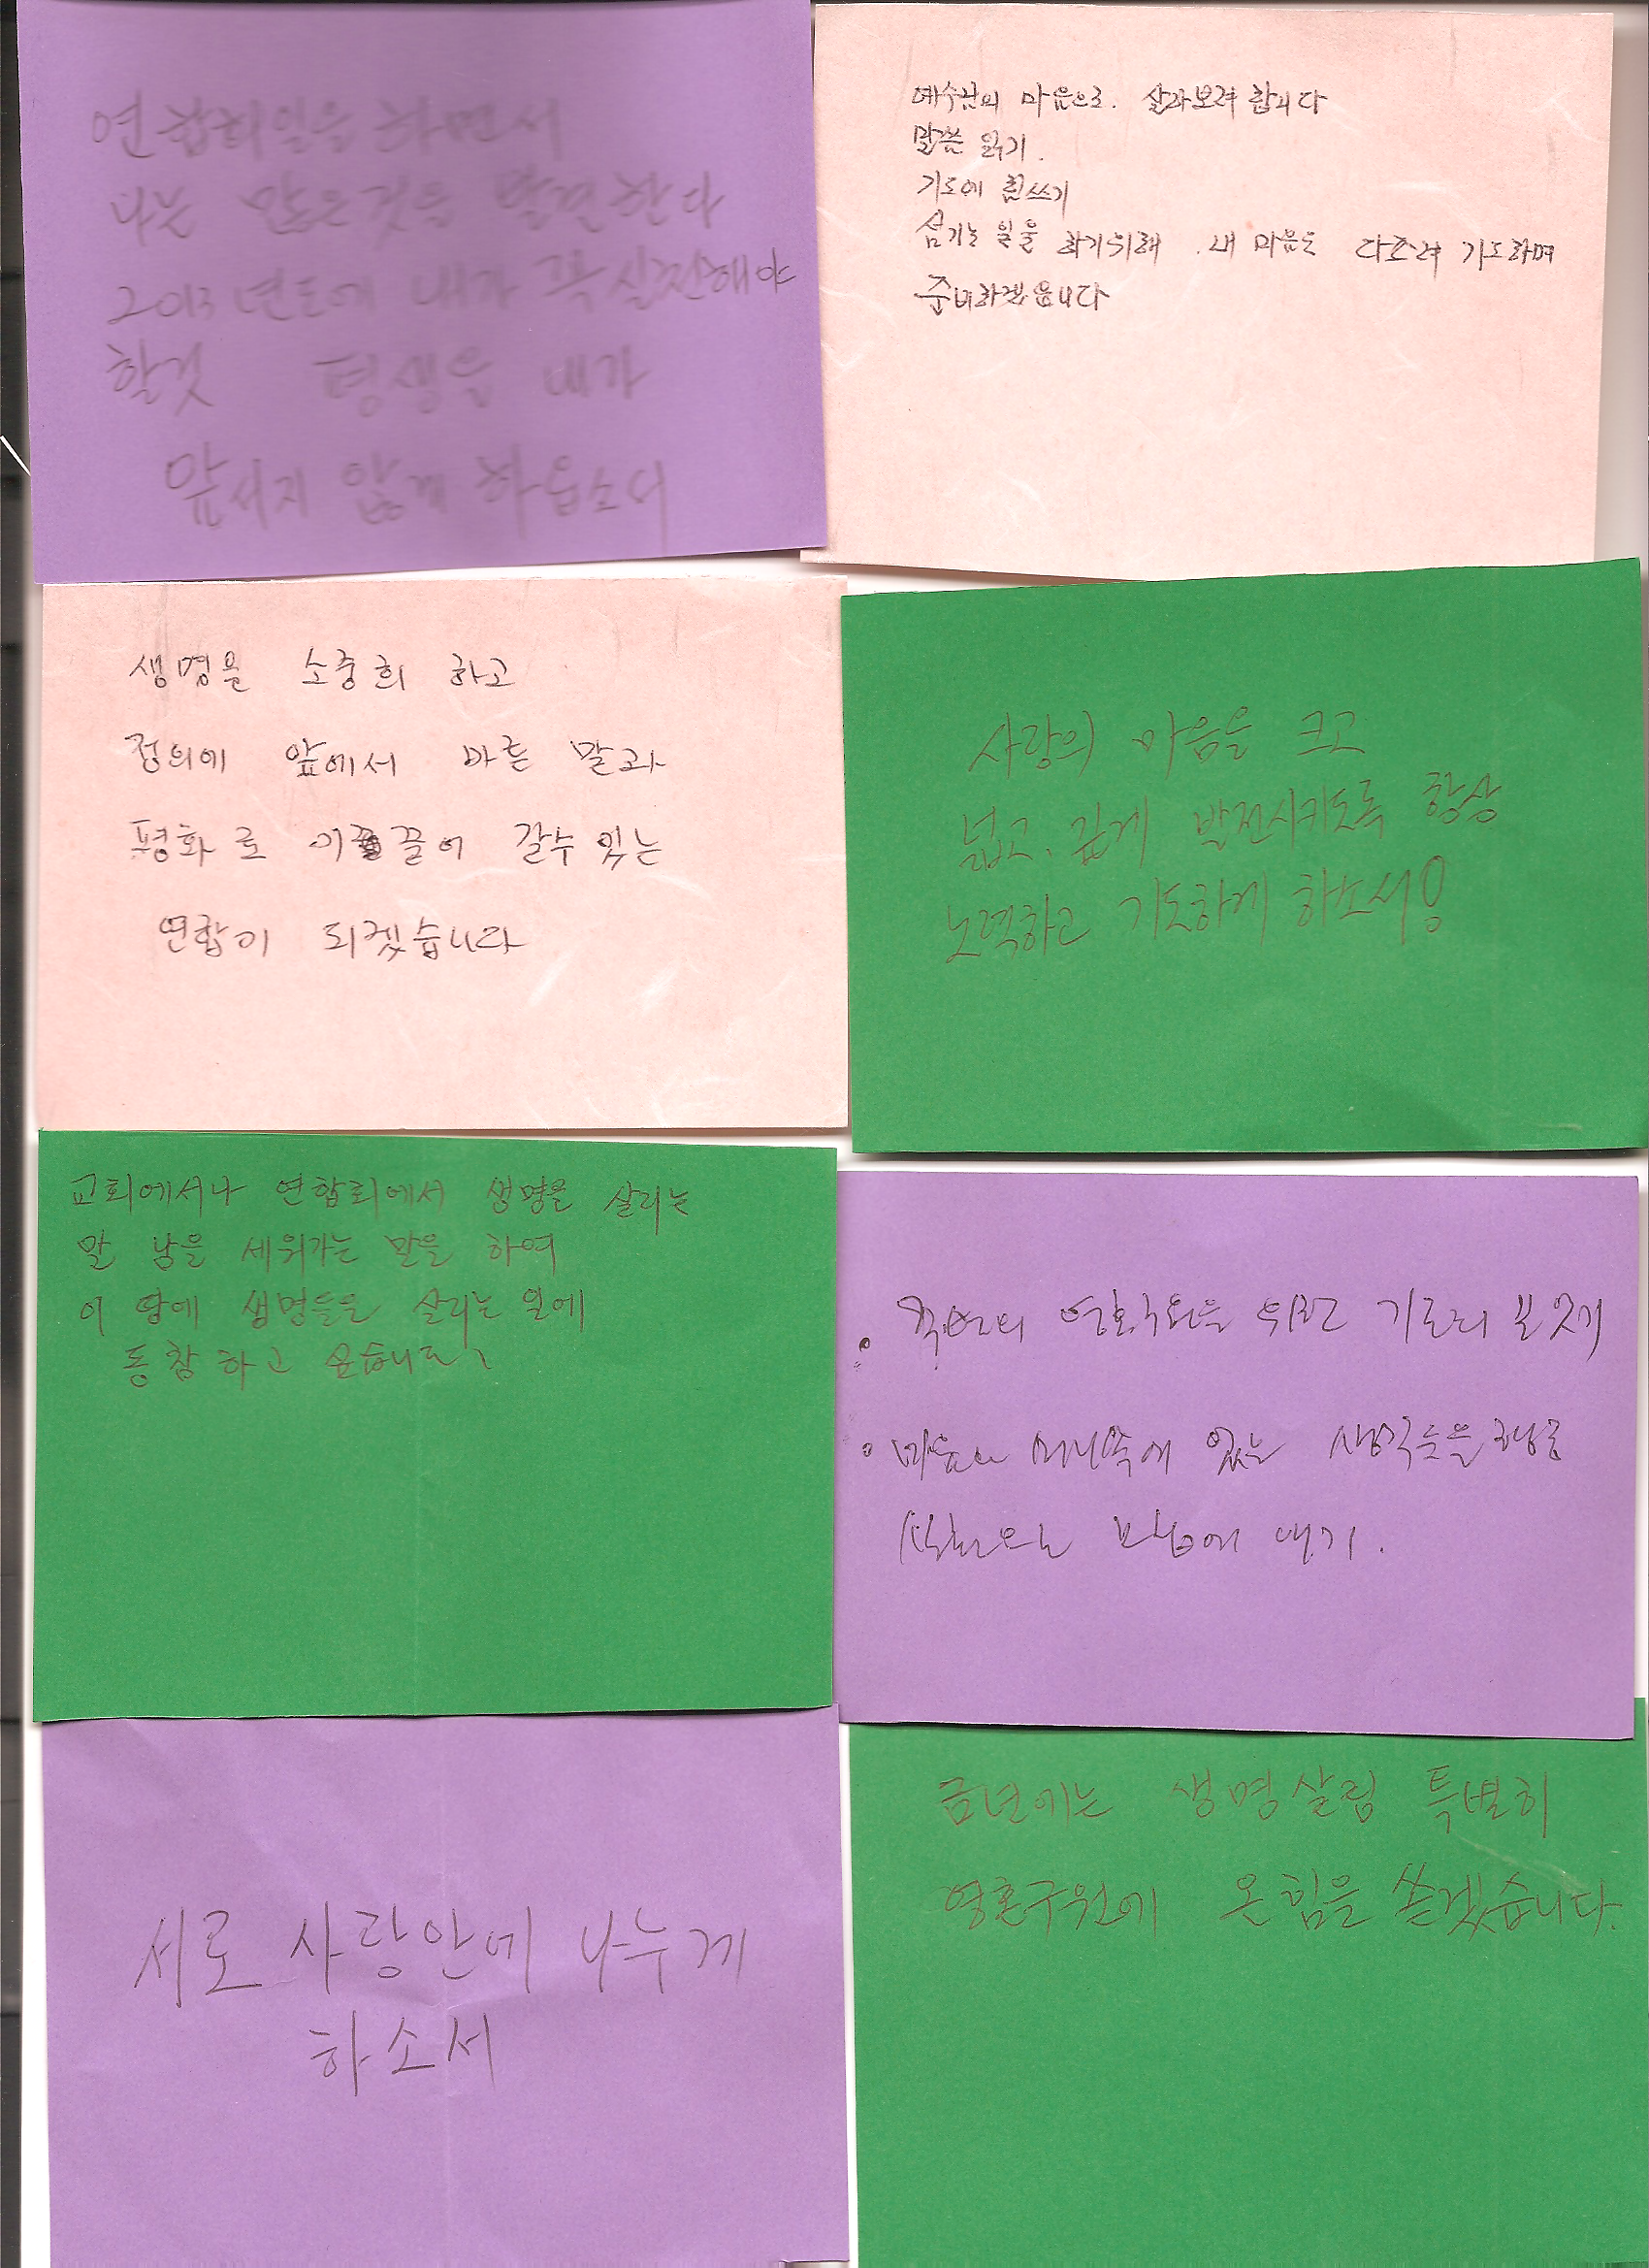 연합회일을 하면서
나는 많은것을 발견한다
2013년도에 내가 꼭 실천해야
할것 평생을 내가
앞서지 않게 하옵소서
예수님의 마음으로. 살아보려 합니다
말씀 읽기.
기도에 힘쓰기
섬기는 일을 하기위해 . 내 마음도 다스려 기도하며
준비하겠읍니다
생명을 소중희 하고
정의에 앞에서 바른 말과
평화로 이끌어 갈수 있는
연합이 되겠습니다
사랑의 마음을 크고
넓고, 깊게 발전시키도록 항상
노력하고 기도하게 하소서!
교회에서나 연합회에서 생명을 살리는
말 남을 세워가는 말을 하여
이 땅에 생명들을 살리는 일에
동참하고 싶습니다
영혼구원을 위한
있는 생각들을
서로 사랑안에 나누게
하소서
금년에는 생명살림 특별히
영혼구원에 온힘을 쏟겠습니다.